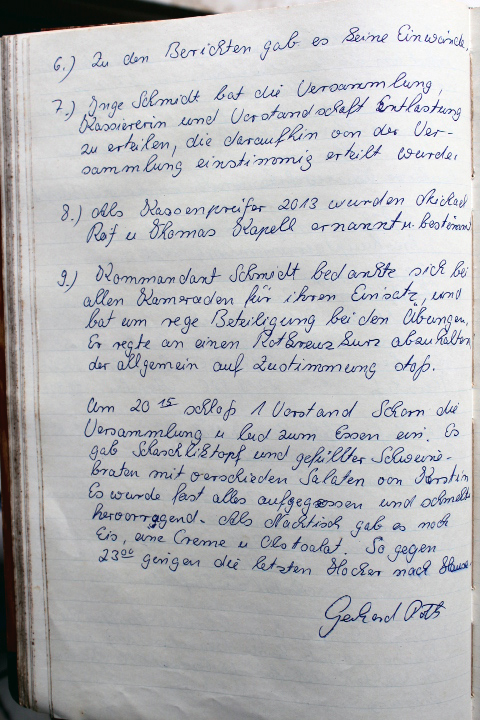 6.) Zu den Berichten gab es keine Einwände.
7.) Inge Schmidt bat die Versammlung,
Kassiererin und Vorstandschaft Entlastung
zu erteilen, die daraufhin von der Ver-
sammlung einstimmig erteilt wurde.
8.) Als Kassenprüfer 2013 wurden Michael
Rof u Thomas Kapell ernannt u. bestimmt
9.) Kommandant Schmidt bedankte sich bei
allen Kameraden für ihren Einsatz, und
bat um rege Beteiligung bei den Übungen.
Er regte an einen Rotkreuzkurs abzuhalten
der allgemein auf Zustimmung stoß.
Um 20 15 schloß 1 Vorstand Schorn die
Versammlung u lud zum Essen ein. Es
gab Schaschliktopf und gefüllter Schweine-
braten mit verschieden Salaten von Kerstin
Es wurde fast alles aufgegessen und schmeckte
hervorragend. Als Nachtisch gab es noch
Eis, eine Creme u Obstsalat. So gegen
23 00 gingen die letzten Hocker nach Hause.
Gerhard Roth